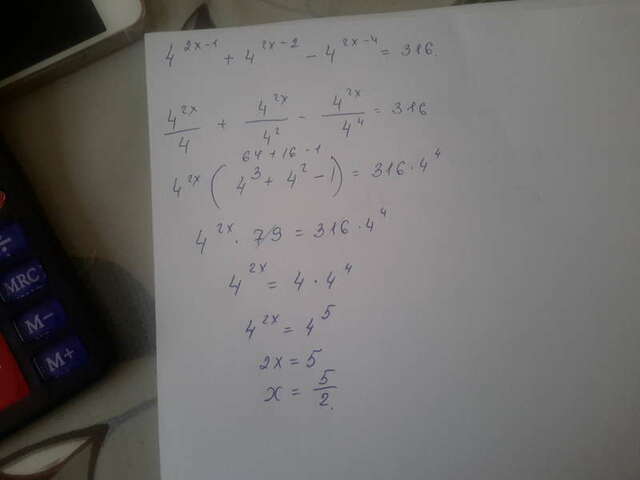 4^{2x-1} + 4^{2x-2} - 4^{2x-4} = 316.
\frac{4^{2x}}{4} + \frac{4^{2x}}{4^2} - \frac{4^{2x}}{4^4} = 316
64 + 16 - 1
4^{2x} (4^3 + 4^2 - 1) = 316 · 4^4
4^{2x} · 79 = 316 · 4^4
4^{2x} = 4 · 4^4
4^{2x} = 4^5
2x = 5
x = \frac{5}{2}.
÷
MRC
M−
M+